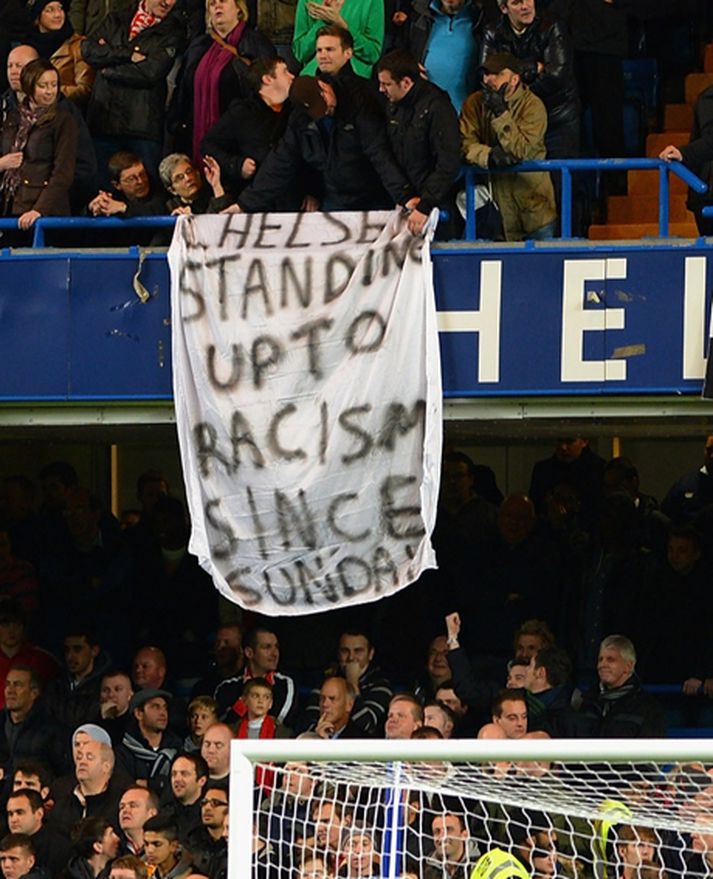 CHELSE
STANDING
UP TO
RACISM
SINCE
SUNDAY!
HEL